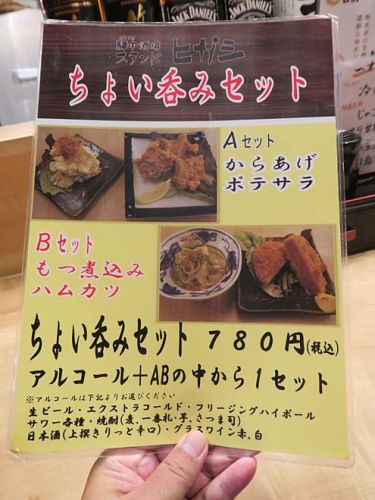 JACK DANIEL'S
JACK DANIEL'S
スタンド ヒガシ
ちょい呑みセット
Aセット
からあげ
ポテサラ
Bセット
もつ煮込み
ハムカツ
ちょい呑みセット 780円(税込)
アルコール+ABの中から1セット
※アルコールは下記よりお選びください
生ビール・エクストラコールド・フリージングハイボール
サワー各種・焼酎(麦、一番札・芋、さつま司)
日本酒(上撰きりっと辛口)・グラスワイン赤、白